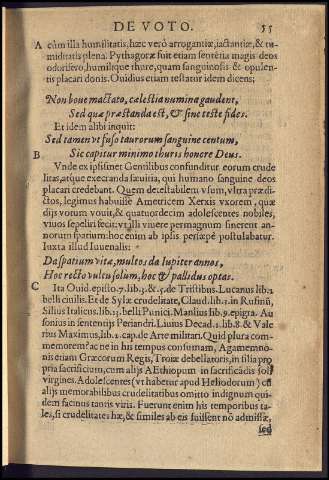 DE VOTO. 55
A cùm illa humilitatis, hæc verò arrogantiæ, iactantiæ, & tu-
miditatis plena. Pythagoræ fuit etiam sententia magis deos
odorisero, humilique thure, quam sanguinosis & opulen-
tis placari donis. Ouidius etiam testatur idem dicens;
Non boue mactato, cælestia numina gaudent,
Sed quæ præstanda est, & sine teste fides.
Et idem alibi inquit:
Sed tamen vt fuso taurorum sanguine centum,
B Sic capitur minimo thuris honere Deus.
Vnde ex ipsismet Gentilibus confunditur eorum crude
litas, atque execanda sæuitia, qui humano sanguine deos
placari credebant. Quem detestabilem vsum, vltra prædi-
ctos, legimus habuisse Ametricem Xerxis vxorem, quæ
dijs votum vouit, & quatuordecim adolescentes nobiles,
viuos sepeliri fecit; vt illi viuere permagnum sinerent an-
norum spatium: hoc enim ab ipsis persæpè postulabatur.
Iuxta illud Iuuenalis:
Da spatium vita, multos da Iupiter annos,
Hoc recto vultu solum, hoc & pallidus optas.
C Ita Ouid. episto. 7. lib. 3. & 5. de Tristibus. Lucanus lib. 1
belli ciuilis. Et de Sylæ crudelitate, Claud. lib. 1. in Rufinũ,
Silius Italicus. lib. 13. belli Punici. Manlius lib. 9. epigra. Au
sonius in sententijs Periandri. Liuius Decad. 1. lib. 8. & Vale
rius Maximus, lib. 1. cap. de Arte militari. Quid plura com-
memorem? ac ne in his tempus consumam, Agamemno-
nis etiam Græcorum Regis, Troiæ debellatoris, in filia pro
pria sacrificium, cum alijs AEthiopum in sacrificãdis soli
virgines. Adolescentes (vt habetur apud Heliodorum) cũ
alijs memorabilibus crudelitatibus omitto indignum qui-
dem facinus tantis viris. Fuerunt enim his temporibus ta-
les, si crudelitates hæ, & similes ab eis fuissent nõ admissæ,
sed